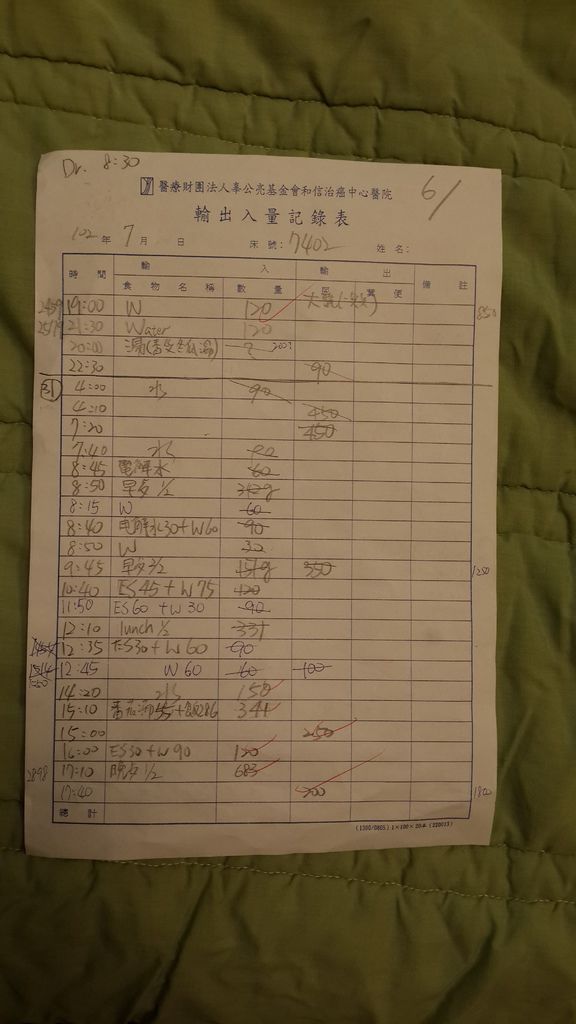 Dr. 8:30
醫療財團法人辜公亮基金會和信治癌中心醫院
6/
輸出入量記錄表
102年 7月 日 床號:7402 姓名:
時間 輸入 輸出 備註
食物名稱 數量 尿 糞便
19:00 W 120
21:30 Water 120
20:00
22:30 90
31 4:00 水 90
4:10 450
7:20 450
7:40 水
8:45 電解水 60
8:50 早 1/2
8:15 W 60
8:40 电解水30+W60 90
8:50 W 30
9:45 早 350 1250
10:40 ES45+W75 120
11:50 ES60+W30 90
12:10 lunch 1/2 331
12:35 ES30+W60 90
12:45 W60 60 100
14:20 水 150
15:10 341
15:00 250
16:00 ES30+W90 120
2898 17:10 晚 1/2 683
17:40 200 1800
總計
(1300/0805) 1×100×20本 (220013)